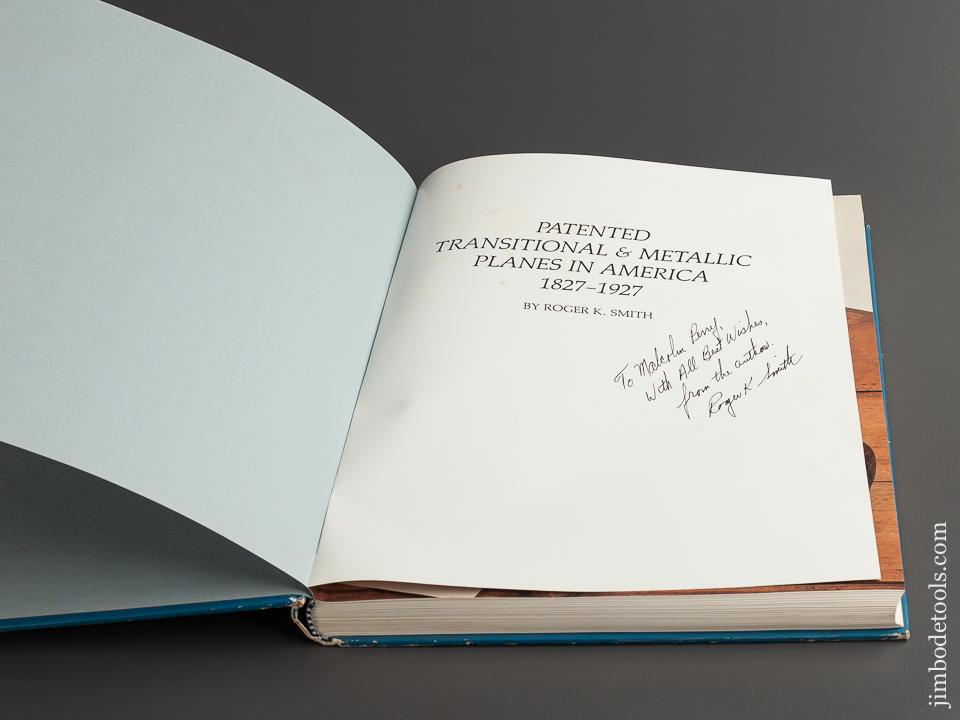 PATENTED
TRANSITIONAL & METALLIC
PLANES IN AMERICA
1827–1927
BY ROGER K. SMITH
To Malcolm Perry,
With All Best Wishes,
from the author.
Roger K Smith
jimbodetools.com